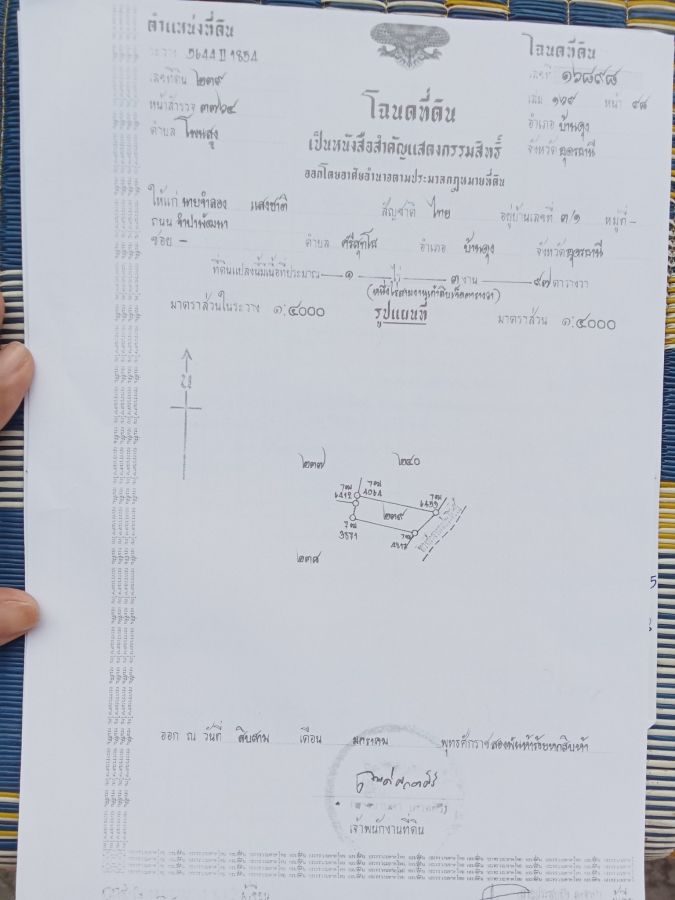 ตำแหน่งที่ดิน
ระวาง 5644 II 1854
เลขที่ดิน ๒๓๙
หน้าสำรวจ ๓๗๖๔
ตำบล โพนสูง
โฉนดที่ดิน
เลขที่ ๑๖๘๙๘
เล่ม ๑๖๙ หน้า ๙๘
อำเภอ บ้านดุง
จังหวัด อุดรธานี
โฉนดที่ดิน
เป็นหนังสือสำคัญแสดงกรรมสิทธิ์
ออกโดยอาศัยอำนาจตามประมวลกฎหมายที่ดิน
ให้แก่ นายจำลอง แสงชาติ สัญชาติ ไทย อยู่บ้านเลขที่ ๓/๑ หมู่ที่ -
ถนน จำปาพัฒนา
ซอย - ตำบล ศรีสุทโธ อำเภอ บ้านดุง จังหวัด อุดรธานี
ที่ดินแปลงนี้มีเนื้อที่ประมาณ ๑ ไร่ ๓ งาน ๙๗ ตารางวา
(หนึ่งไร่สามงานเก้าสิบเจ็ดตารางวา)
มาตราส่วนในระวาง ๑:๔๐๐๐ รูปแผนที่ มาตราส่วน ๑:๔๐๐๐
น
๒๓๗ ๒๔๐
4064
6412
๒๓๙
3871
๒๓๘
ออก ณ วันที่ สิบสาม เดือน มกราคม พุทธศักราช สองพันห้าร้อยหกสิบห้า
เจ้าพนักงานที่ดิน